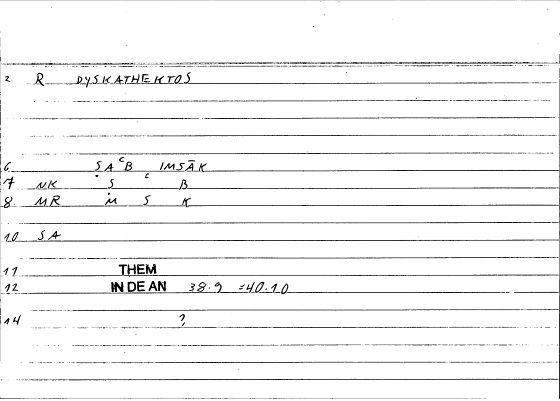 2 R DYSKATHEKTOS
6 ṢAᶜB IMSĀK
7 NK Ṣ ᶜ B
8 MR M S K
10 SA
11 THEM
12 IN DE AN 38.9 =40.10
14 ?